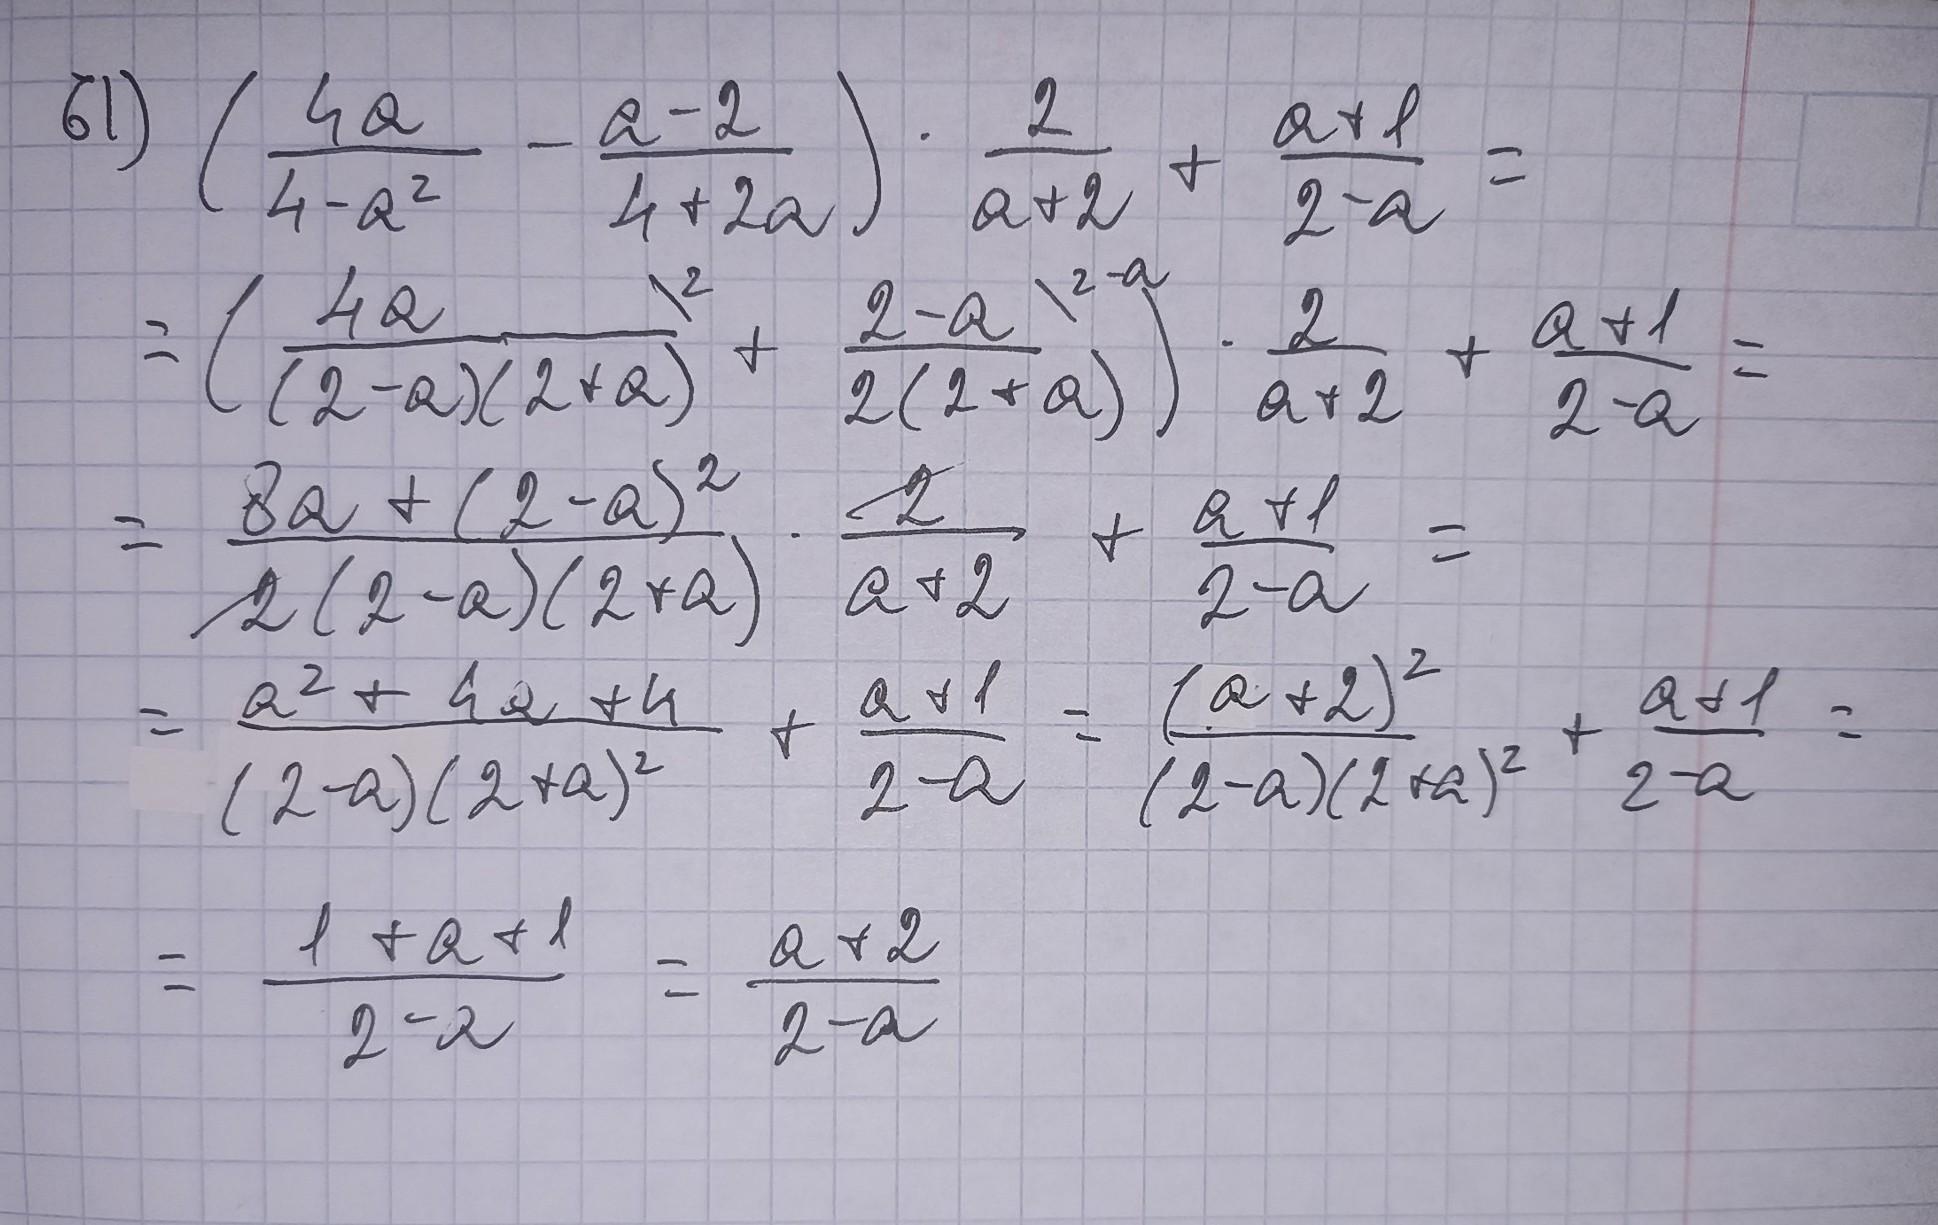 61) (4a/(4-a²) - (a-2)/(4+2a)) · 2/(a+2) + (a+1)/(2-a) =
= (4a/((2-a)(2+a)) \² + (2-a)/(2(2+a)) \²⁻ᵃ) · 2/(a+2) + (a+1)/(2-a) =
= (8a+(2-a)²)/(2(2-a)(2+a)) · 2/(a+2) + (a+1)/(2-a) =
= (a²+4a+4)/((2-a)(2+a)²) + (a+1)/(2-a) = (a+2)²/((2-a)(2+a)²) + (a+1)/(2-a) =
= (1+a+1)/(2-a) = (a+2)/(2-a)